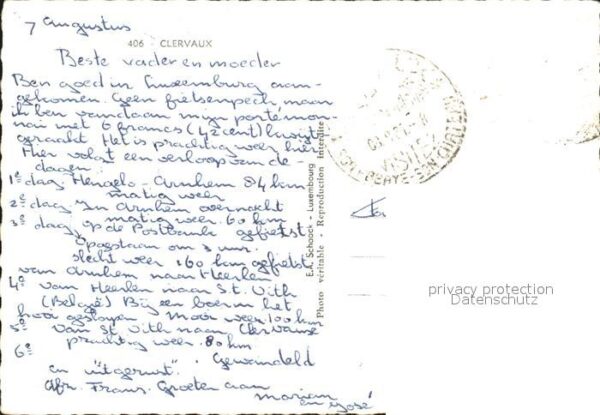 7 Augustus
406 - CLERVAUX
Beste vader en moeder
Ben goed in Luxemburg aan-
gekomen. Geen fietsenpech, maar
ik ben vandaag mijn portémon-
nai met 6 francs (42 cent) kwijt
geraakt. Het is prachtig weer hier
Hier volgt een verloop van de
dagen.
1e dag Hengelo - Arnhem 84 km
matig weer
2e dag In Arnhem overnacht
matig weer 60 km
3e dag, op de Postbank gefietst
Opgestaan om 3 uur.
slecht weer 160 km gefietst
van Arnhem naar Heerlen
4e van Heerlen naar St. Vith
(België) Bij een boer in het
hooi geslapen Mooi weer 100 km
5e van St. Vith naar Clervaux
prachtig weer. 80 km
6e Gewandeld
en "uitgerust".
Frans. Groeten aan
Mariam
en José
E.A. Schaack - Luxembourg
Photo véritable - Reproduction interdite
VISITEZ
privacy protection
Datenschutz